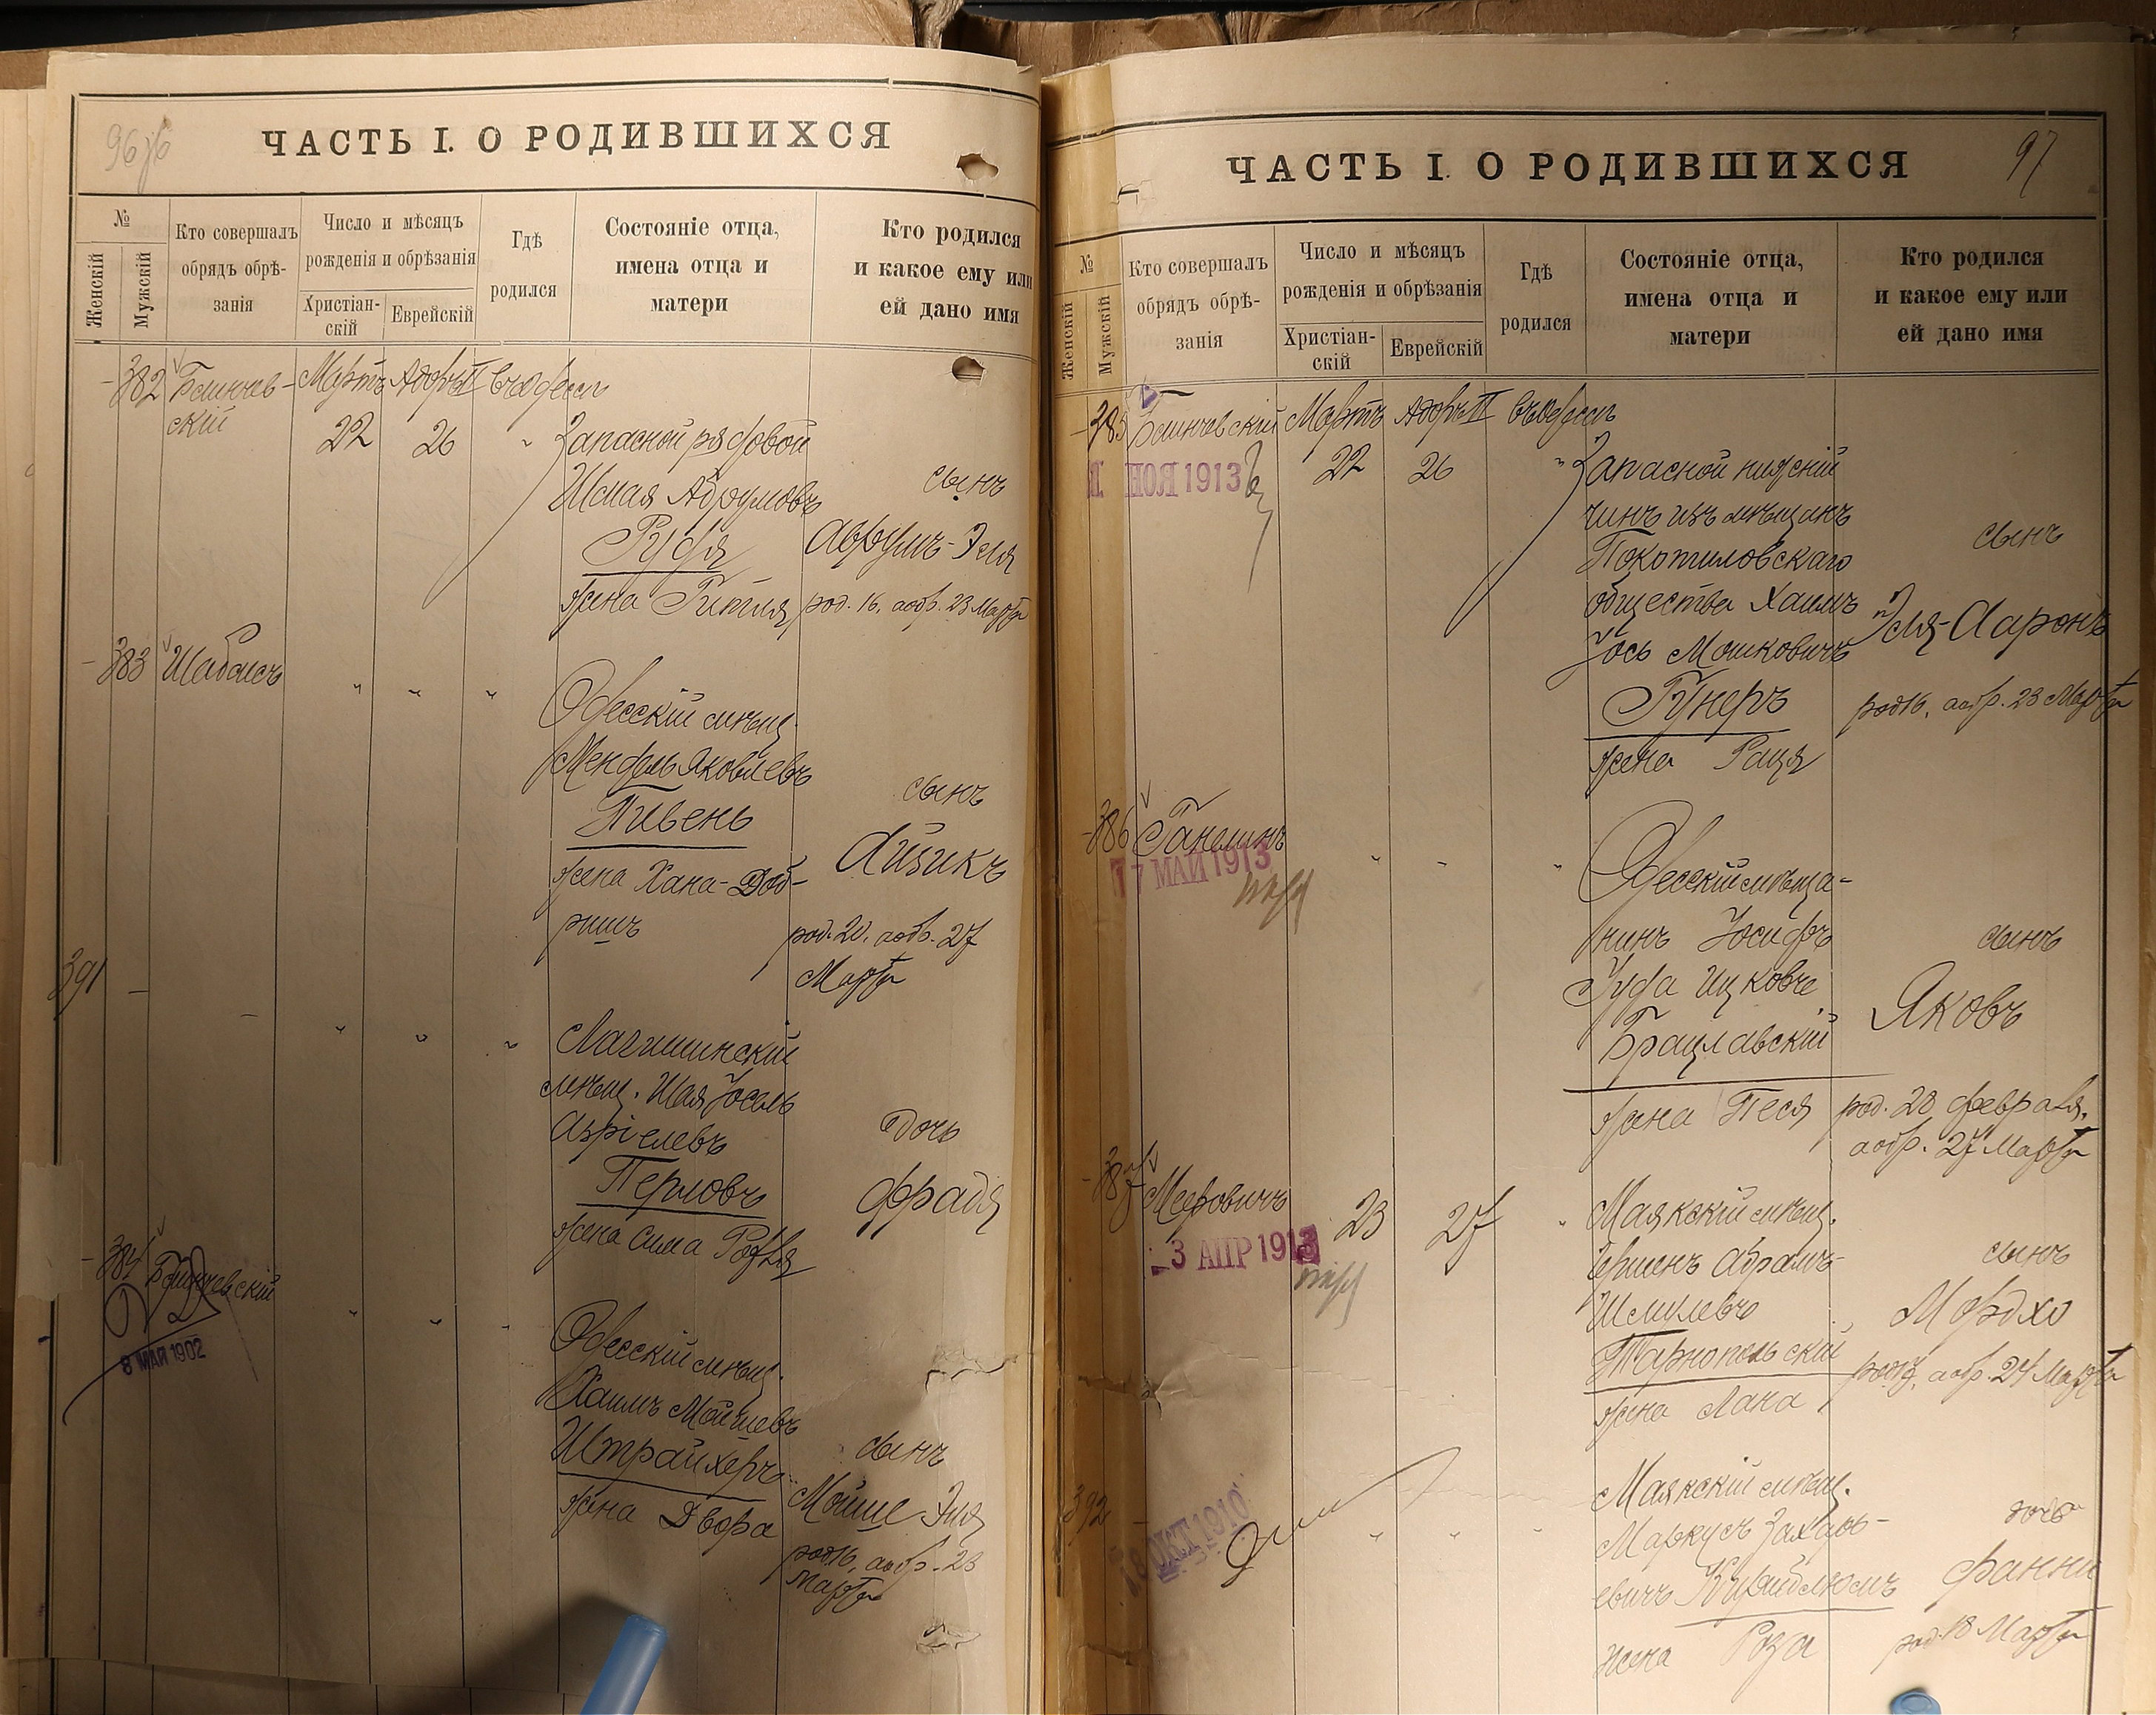 96
ЧАСТЬ I. О РОДИВШИХСЯ
№
Женскій
Мужскій
Кто совершалъ
обрядъ обрѣ-
занія
Число и мѣсяцъ
рожденія и обрѣзанія
Христіан-
скій
Еврейскій
Гдѣ
родился
Состояніе отца,
имена отца и
матери
Кто родился
и какое ему или
ей дано имя
382
скій
Мартъ Адаръ II Въ Одессѣ
22 26 "
Запасной рядовой
Шмая Абрумовъ
Рудя
жена Гитля
сынъ
Аврумъ-Эля
род. 16, а обр. 23 Марта
383 Шабаесъ " " "
Одесскій мѣщ.
Мендель Яковлевъ
Пивень
жена Хана-Доб-
ришъ
сынъ
Айзикъ
род. 20, а обр. 27
Марта
391 — — " " "
мѣщ. Шая Іосель
Азріелевъ
Перловъ
жена Сима Рохля
дочь
Фрадя
384 " " "
8 МАЙ 1902
Одесскій мѣщ.
Хаимъ Мойшевъ
Штрайхеръ
жена Двора
сынъ
Мойше Эля
род. 16, а обр. 23
Марта
97
ЧАСТЬ I. О РОДИВШИХСЯ
№
Женскій
Мужскій
Кто совершалъ
обрядъ обрѣ-
занія
Число и мѣсяцъ
рожденія и обрѣзанія
Христіан-
скій
Еврейскій
Гдѣ
родился
Состояніе отца,
имена отца и
матери
Кто родился
и какое ему или
ей дано имя
385 Мартъ Адаръ II Въ Одессѣ
НОЯ 1913
22 26 "
Запасной нижній
чинъ изъ мѣщанъ
Покотиловскаго
общества Хаимъ
Іось Мошковичъ
Гунеръ
жена Рация
сынъ
Эля-Ааронъ
род 16, а обр. 23 Марта
386 " " "
17 МАЙ 1913
Одесскій мѣща-
нинъ Іосифъ
Іуда Ицковъ
Брацлавскій
жена Песя
сынъ
Яковъ
род. 20 февраля,
а обр. 27 Марта
387 Мееровичъ 23 27 "
3 АПР 1913
Маякскій мѣщ.
Гершенъ Абрамъ-
Шмулевъ
Тарнопольскій
жена Лана
сынъ
Мордхо
а обр. 24 Марта
392 — " " "
18 ОКТ 1910
Маякскій мѣщ.
Маркусъ Захарь-
евичъ
жена Роза
дочь
Фанни
род. 18 Марта